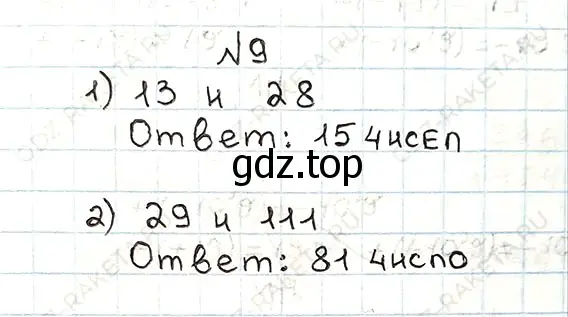 №9
1) 13 и 28
Ответ: 15 чисел
gdz.top
2) 29 и 111
Ответ: 81 число